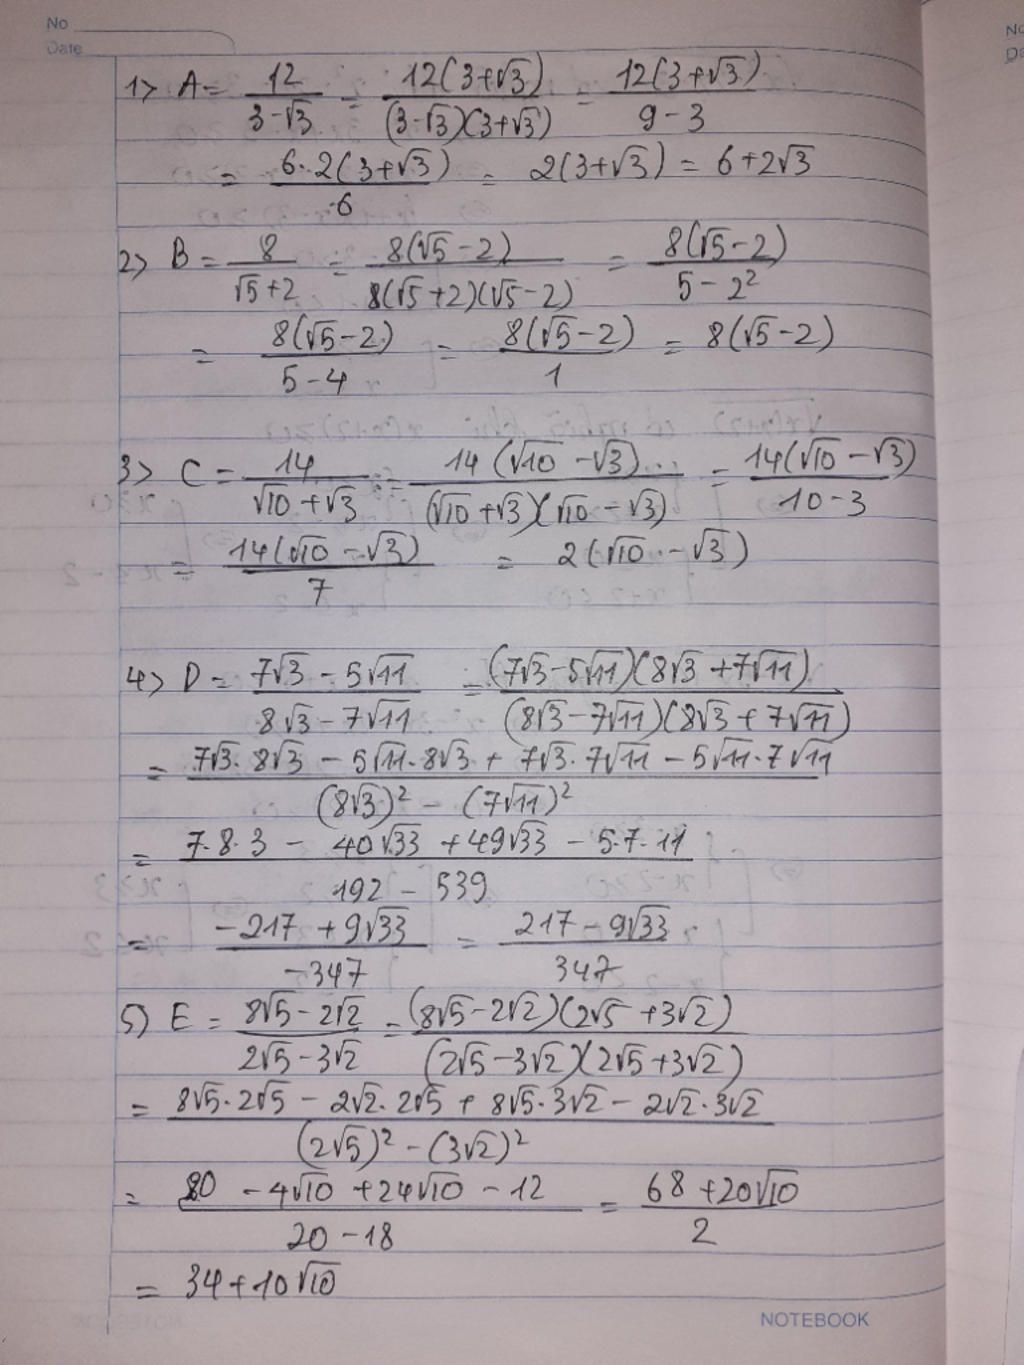 No
Date
1> A = 12/(3-√3) = 12(3+√3)/((3-√3)(3+√3)) = 12(3+√3)/(9-3)
= 6·2(3+√3)/6 = 2(3+√3) = 6+2√3
2> B = 8/(√5+2) = 8(√5-2)/(8(√5+2)(√5-2)) = 8(√5-2)/(5-2²)
= 8(√5-2)/(5-4) = 8(√5-2)/1 = 8(√5-2)
3> C = 14/(√10+√3) = 14(√10-√3)/((√10+√3)(√10-√3)) = 14(√10-√3)/(10-3)
= 14(√10-√3)/7 = 2(√10-√3)
4> D = (7√3-5√11)/(8√3-7√11) = (7√3-5√11)(8√3+7√11)/((8√3-7√11)(8√3+7√11))
= (7√3·8√3 - 5√11·8√3 + 7√3·7√11 - 5√11·7√11)/((8√3)² - (7√11)²)
= (7·8·3 - 40√33 + 49√33 - 5·7·11)/(192 - 539)
= (-217+9√33)/(-347) = (217-9√33)/347
5) E = (8√5-2√2)/(2√5-3√2) = (8√5-2√2)(2√5+3√2)/((2√5-3√2)(2√5+3√2))
= (8√5·2√5 - 2√2·2√5 + 8√5·3√2 - 2√2·3√2)/((2√5)² - (3√2)²)
= (80 - 4√10 + 24√10 - 12)/(20-18) = (68+20√10)/2
= 34+10√10
NOTEBOOK